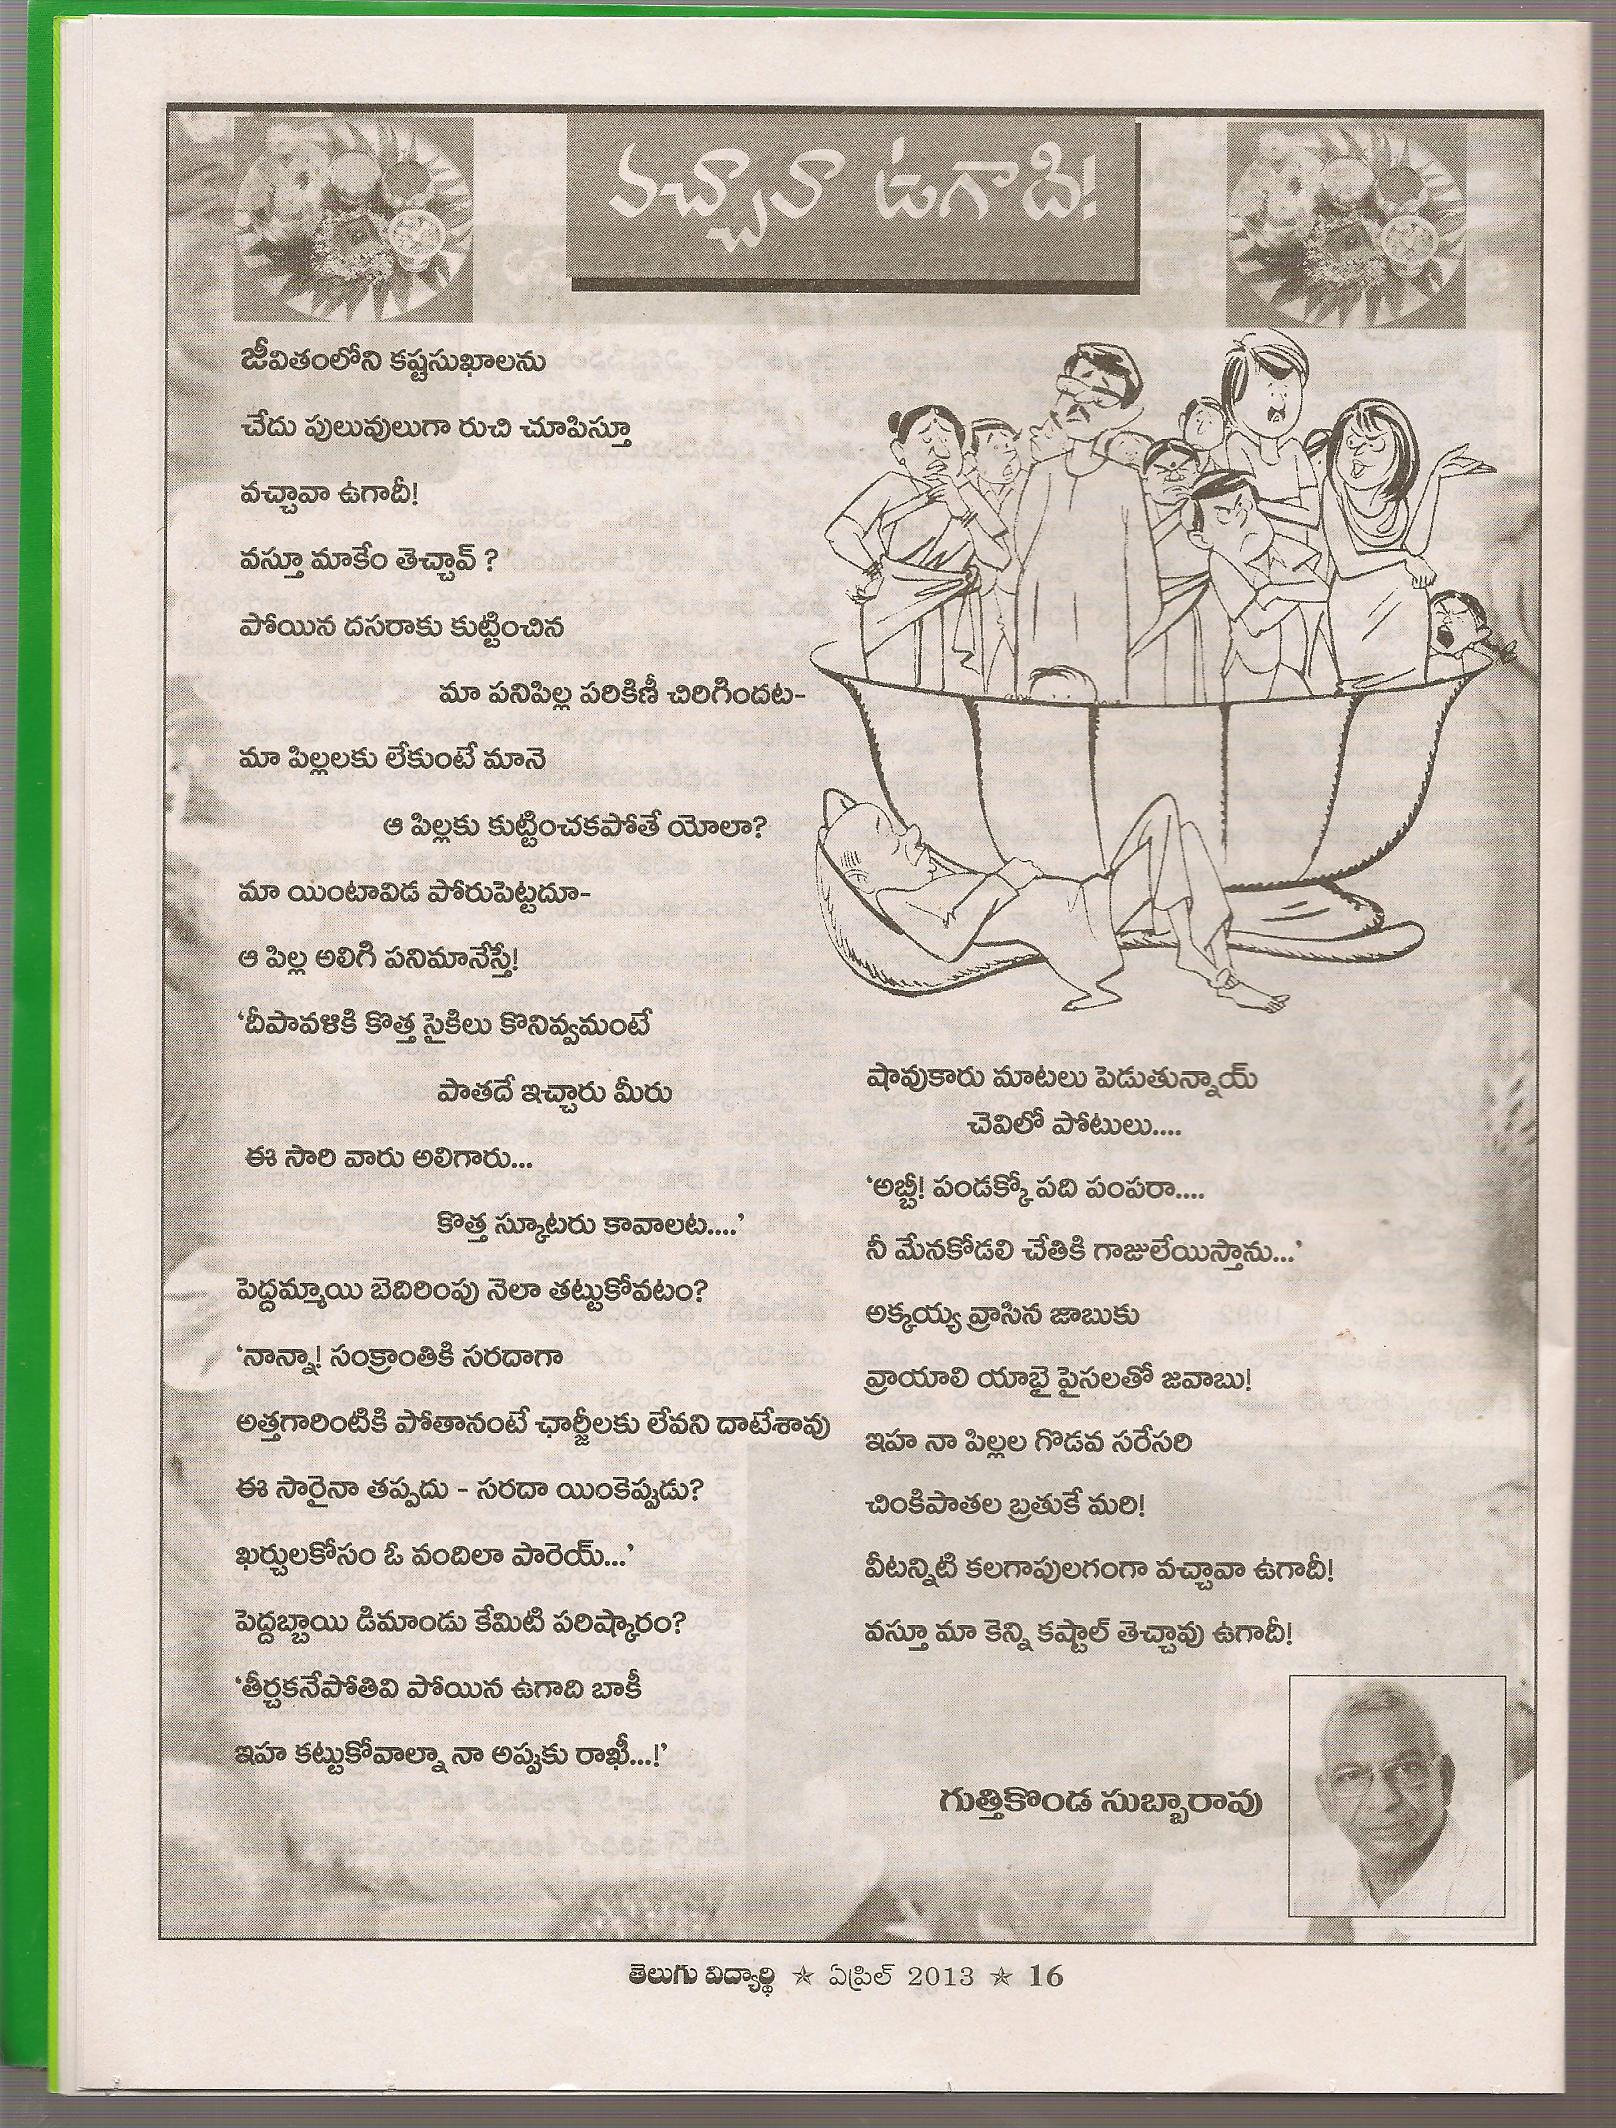 వచ్చావా ఉగాది!
జీవితంలోని కష్టసుఖాలను
చేదు పులువులుగా రుచి చూపిస్తూ
వచ్చావా ఉగాదీ!
వస్తూ మాకేం తెచ్చావ్ ?
పోయిన దసరాకు కుట్టించిన
మా పనిపిల్ల పరికిణీ చిరిగిందట-
మా పిల్లలకు లేకుంటే మానె
ఆ పిల్లకు కుట్టించకపోతే యోలా?
మా యింటావిడ పోరుపెట్టదూ-
ఆ పిల్ల అలిగి పనిమానేస్తే!
‘దీపావళికి కొత్త సైకిలు కొనివ్వమంటే
పాతదే ఇచ్చారు మీరు
ఈ సారి వారు అలిగారు...
కొత్త స్కూటరు కావాలట....’
పెద్దమ్మాయి బెదిరింపు నెలా తట్టుకోవటం?
‘నాన్నా! సంక్రాంతికి సరదాగా
అత్తగారింటికి పోతానంటే ఛార్జీలకు లేవని దాటేశావు
ఈ సారైనా తప్పదు - సరదా యింకెప్పుడు?
ఖర్చులకోసం ఓ వందిలా పారెయ్...’
పెద్దబ్బాయి డిమాండు కేమిటి పరిష్కారం?
‘తీర్చకనేపోతివి పోయిన ఉగాది బాకీ
ఇహ కట్టుకోవాల్నా నా అప్పుకు రాఖీ...!’
షావుకారు మాటలు పెడుతున్నాయ్
చెవిలో పోటులు....
‘అబ్బీ! పండక్కో పది పంపరా....
నీ మేనకోడలి చేతికి గాజులేయిస్తాను...’
అక్కయ్య వ్రాసిన జాబుకు
వ్రాయాలి యాభై పైసలతో జవాబు!
ఇహ నా పిల్లల గొడవ సరేసరి
చింకిపాతల బ్రతుకే మరి!
వీటన్నిటి కలగాపులగంగా వచ్చావా ఉగాదీ!
వస్తూ మా కెన్ని కష్టాల్ తెచ్చావు ఉగాదీ!
గుత్తికొండ సుబ్బారావు
తెలుగు విద్యార్థి ☆ ఏప్రిల్ 2013 ☆ 16